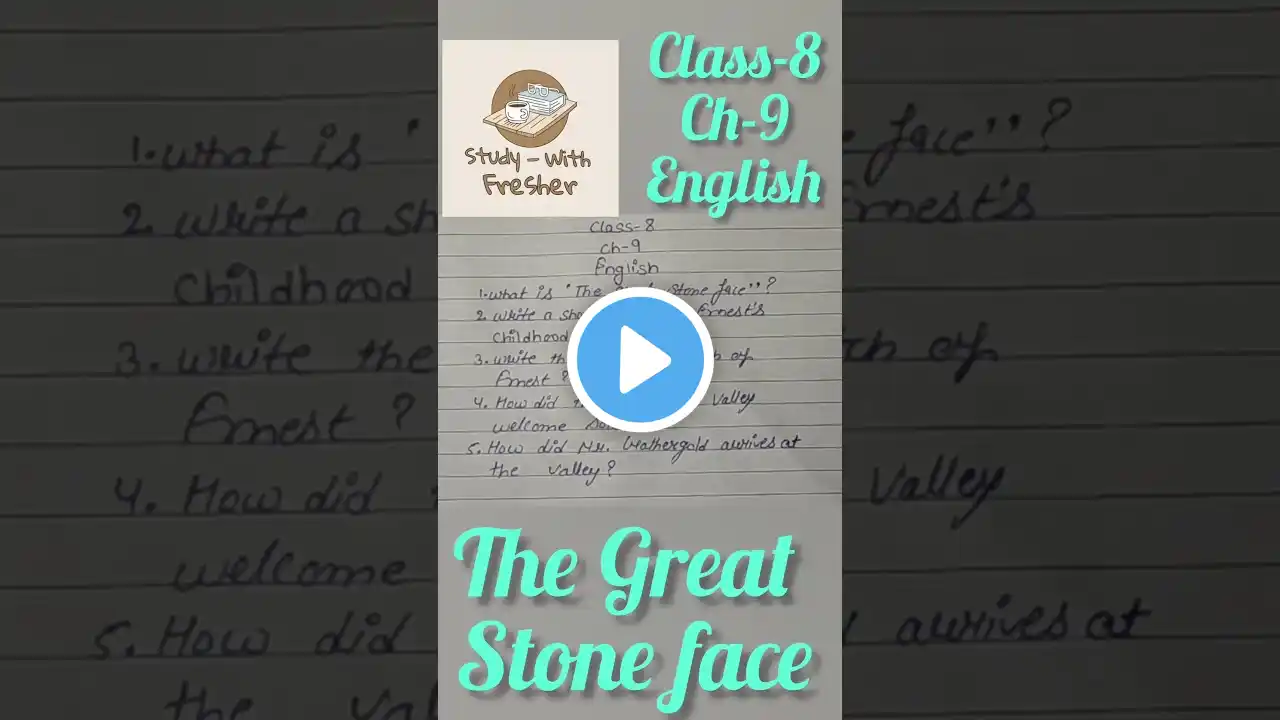 Study - With
Fresher
Class-8
Ch-9
English
Class-8
Ch-9
English
1. What is "The Stone face"?
2. Write a Ernest's
Childhood
3. Write
Ernest?
4. How did Valley
welcome
5. How did Mr. Gathergold arrives at
the Valley?
The Great
Stone face